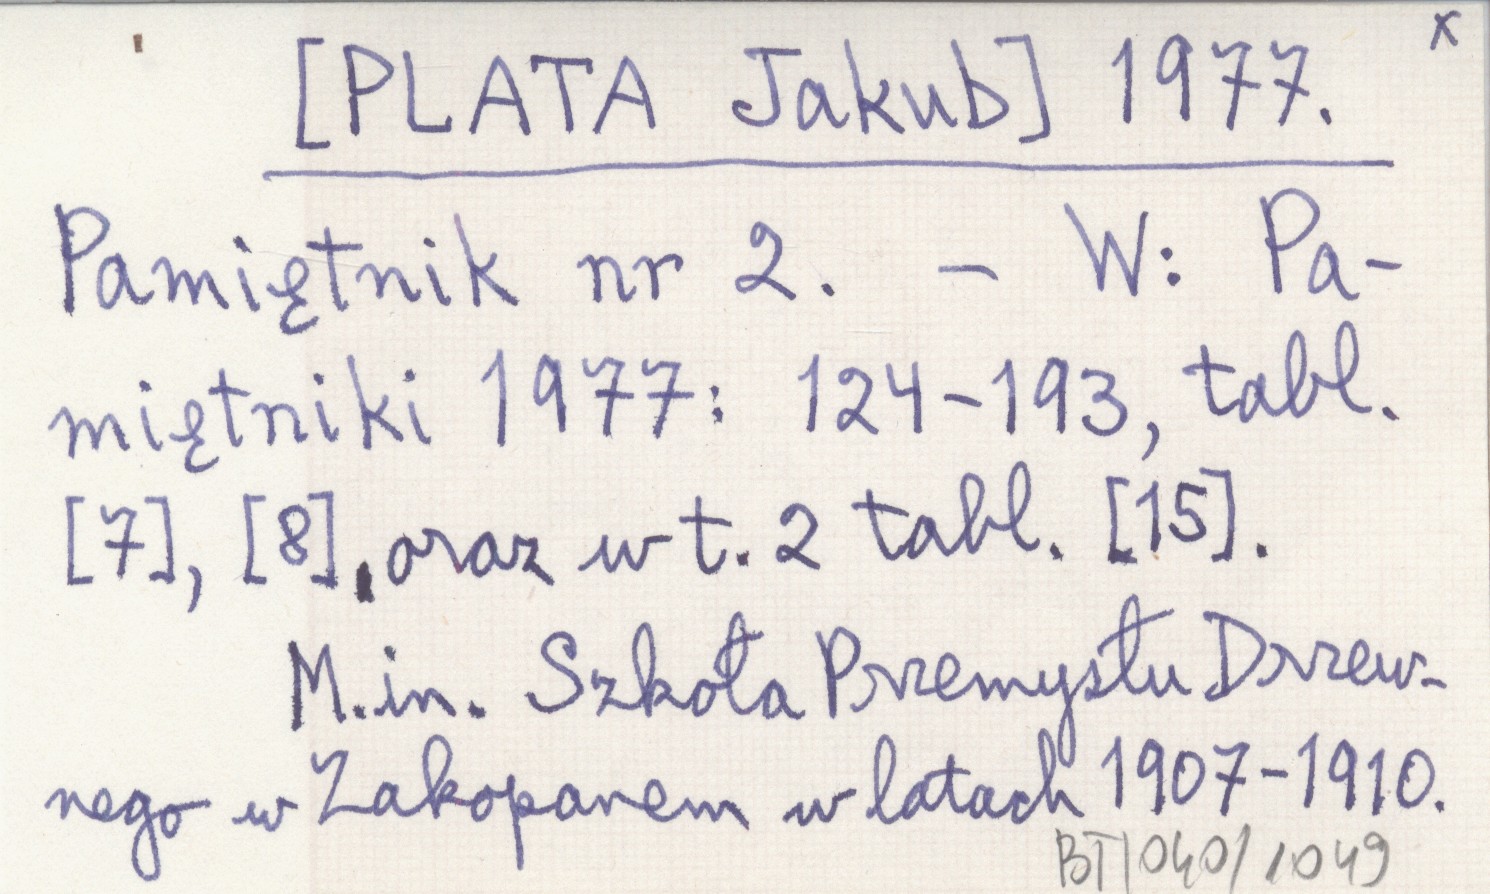 x
[PLATA Jakub] 1977.
Pamiętnik nr 2. – W: Pa-
miętniki 1977: 124-193, tabl.
[7], [8], oraz w t. 2 tabl. [15].
M.in. Szkoła Przemysłu Drzew-
nego w Zakopanem w latach 1907-1910.
BT/040/1049